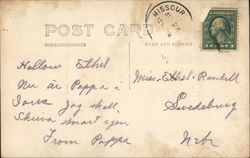 MISSOUR
POST CARD
CORRESPONDENCE
NAME AND ADDRESS
Hallow Ethel
Nu är Pappa i
Iowa Jag skall
Skriva snart igen
From Pappa
Miss Ethel Randell
Swedeburg
Nebr